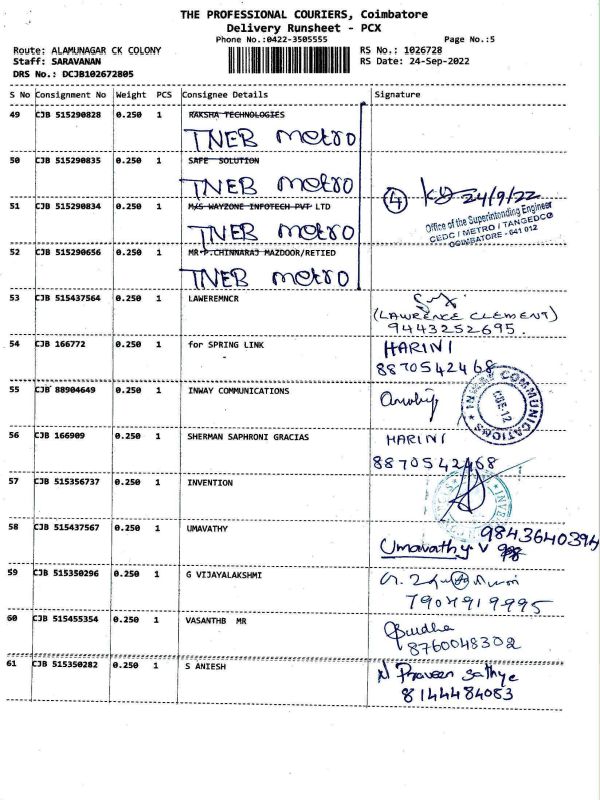 THE PROFESSIONAL COURIERS, Coimbatore
Delivery Runsheet - PCX
Phone No.:0422-3505555 Page No.:5
Route: ALAMUNAGAR CK COLONY RS No.: 1026728
Staff: SARAVANAN RS Date: 24-Sep-2022
DRS No.: DCJB102672805
S No Consignment No Weight PCS Consignee Details Signature
49 CJB 515290828 0.250 1 RAKSHA TECHNOLOGIES
TNEB metro
50 CJB 515290835 0.250 1 SAFE SOLUTION
TNEB metro
4 24/9/22
51 CJB 515290834 0.250 1 M/S WAYZONE INFOTECH PVT LTD
Office of the Superintending Engineer
CEDC / METRO / TANGEDCO
COIMBATORE - 641 012
TNEB metro
52 CJB 515290656 0.250 1 MR P.CHINNARAJ MAZDOOR/RETIED
TNEB metro
53 CJB 515437564 0.250 1 LAWEREMNCR
(LAWRENCE CLEMENT)
9443252695.
54 CJB 166772 0.250 1 for SPRING LINK HARINI
-
8870542468
55 CJB 88904649 0.250 1 INWAY COMMUNICATIONS
INWAY COMMUNICATIONS
CBE-12
56 CJB 166909 0.250 1 SHERMAN SAPHRONI GRACIAS HARINI
8870542468
57 CJB 515356737 0.250 1 INVENTION
58 CJB 515437567 0.250 1 UMAVATHY 9843640394
Umavathy. V
59 CJB 515350296 0.250 1 G VIJAYALAKSHMI
7904919995
60 CJB 515455354 0.250 1 VASANTHB MR
8760048302
61 CJB 515350282 0.250 1 S ANIESH N Praveen Sathye
8144484083